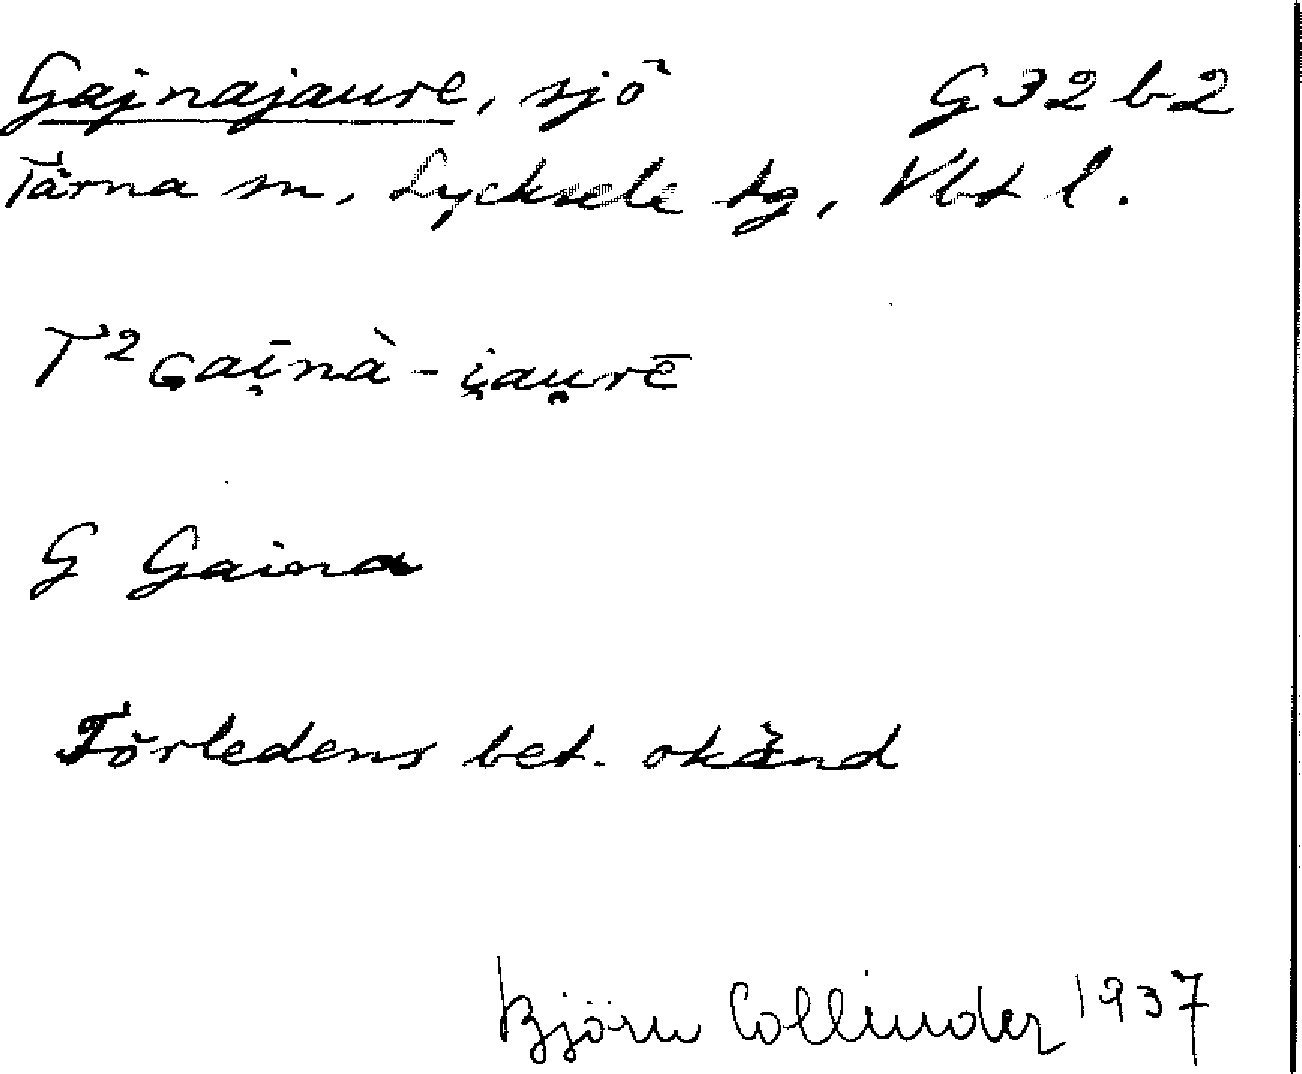 Gajnajaure, sjö G32 b2
Tärna sn, Lycksele tg, Vbt l.
T² Gai̯nà-i̯au̯rē
G Gaina
Förledens bet. okänd
Björn Collinder 1937